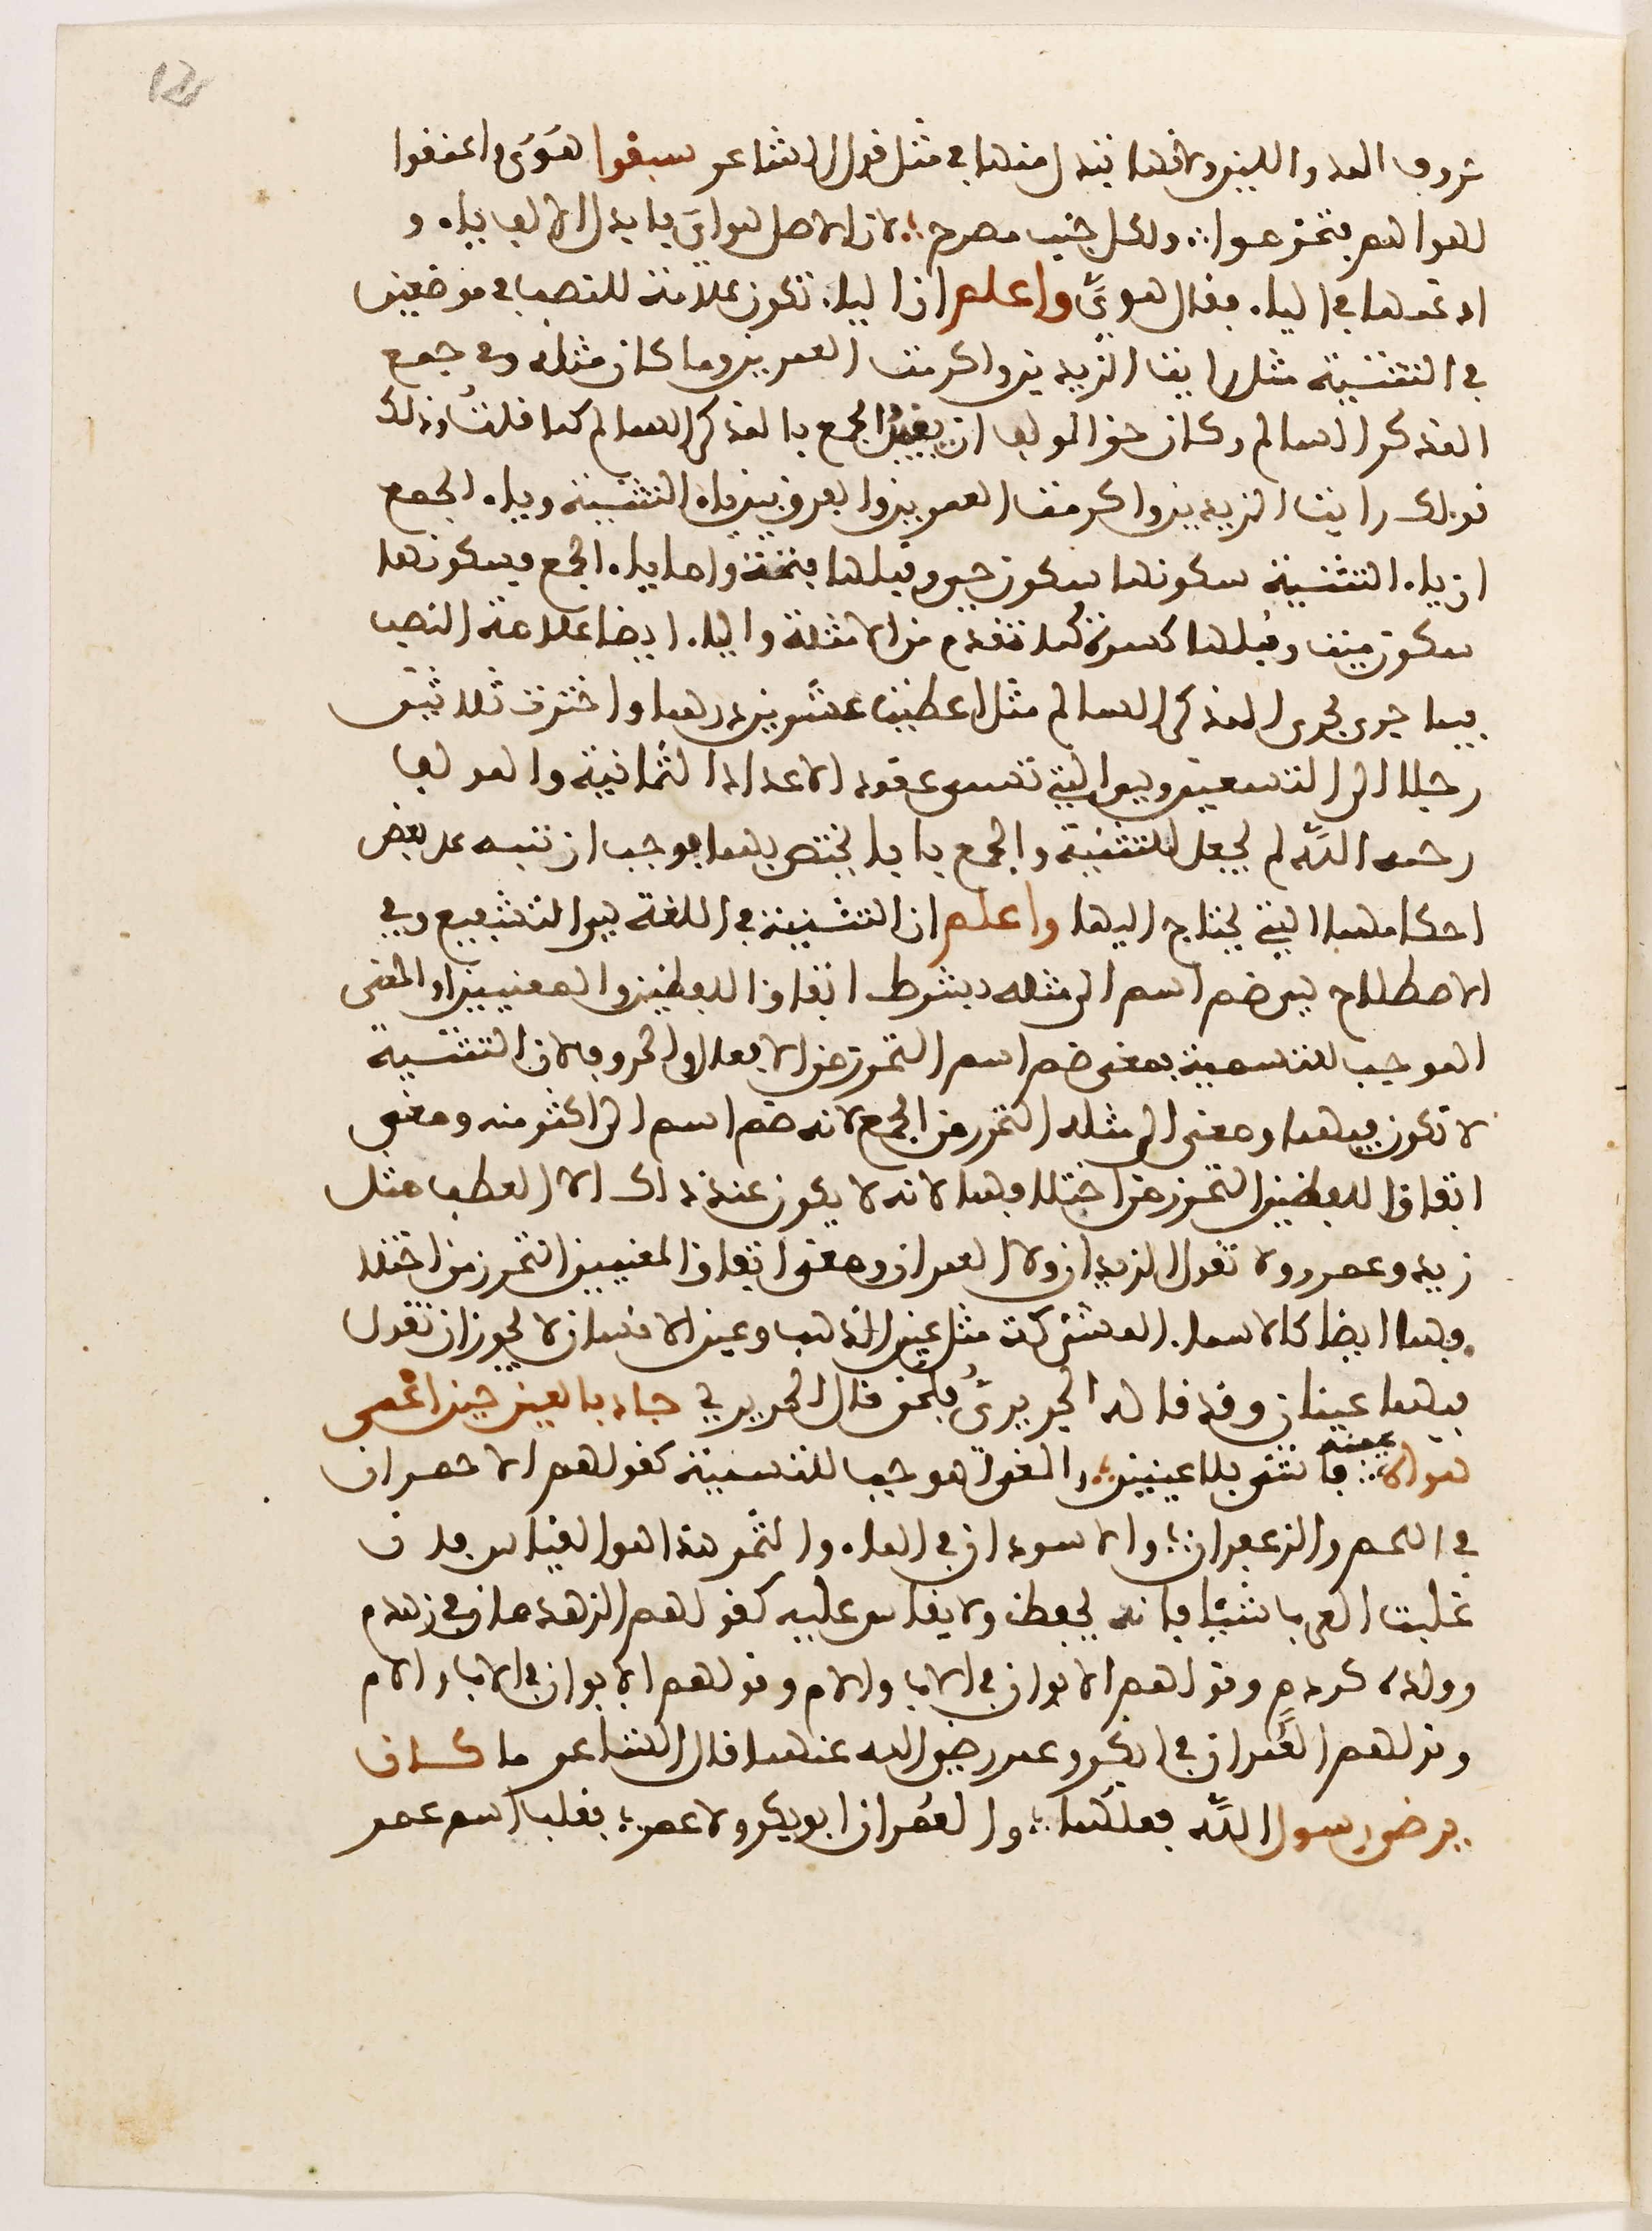 حروف المد واللين ولانها تبدل منها في مثل قول الشاعر سبقوا هَوَيَّ واعنقوا
لهواهم فتخرموا ولكل جنب مصرع لان الاصل هواي فابدل الالف ياء و
ادغمها في الياء فقال هويَّ واعلم ان الياء تكون علامة للنصب في موضعين
في التثنية مثل رايت الزيدين واكرمت العمرين وما كان مثله وفي جمع
المذكر السالم وكان حق المولف ان يقيد الجمع بالمذكر السالم كما قلت وذلك
قولك رايت الزيدين واكرمت العمرين والفرق بين ياء التثنية وياء الجمع
ان ياء التثنية سكونها سكون حي وقبلها فتحة واما ياء الجمع فسكونها
سكون ميت وقبلها كسرة كما تقدم من الامثلة والياء ايضا علامة النصب
فيما جرى مجرى المذكر السالم مثل اعطيت عشرين درهما واخترت ثلاثين
رجلا الى التسعين وهي التي تسمى عقود الاعداد الثمانية والمولف
رحمه اللّه لم يجعل للتثنية والجمع بابا يختص بهما فوجب ان ننبه على بعض
احكامهما التي يحتاج اليها واعلم ان التثنية في اللغة هي التشفيع وفي
الاصطلاح هي ضم اسم الى مثله بشرط اتفاق اللفظين والمعنيين او المعنى
الموجب للتسمية فمعنى ضم اسم التحرز من الافعال والحروف لان التثنية
لا تكون فيهما ومعنى الى مثله التحرز من الجمع لانه ضم اسم الى اكثر منه ومعنى
اتفاق اللفظين التحرز من اختلافهما لانه لا يكون عند ذاك الا العطف مثل
زيد وعمرو ولا تقول الزيدان ولا العمران ومعنى اتفاق المعنيين التحرز من اختلا
فهما ايضا كالاسماء المشتركة مثل عين الذهب وعين الانسان لا يجوز ان تقول
فيهما عينان وقد قاله الحريريُّ فلحن قال الحريري جاد بالعين حين اعمى
هواه عينه فانثنى بلا عينين والمعنى الموجب للتسمية كقولهم الاحمران
في اللحم والزعفران والاسودان في الماء والتمر هذا هو القياس فان
غلبت العرب شيئا فانه يحفظ ولا يقاس عليه كقولهم الزهدمان في زهدم
وولده كردم وقولهم الابوان في الاب والام وقولهم الابوان في الاب والام
وقولهم العُمران في ابي بكر وعمر رضي الله عنهما قال الشاعر ما كان
يرضى رسول اللّه فعلكما والعُمران ابو بكر ولا عمر فغلب اسم عمر